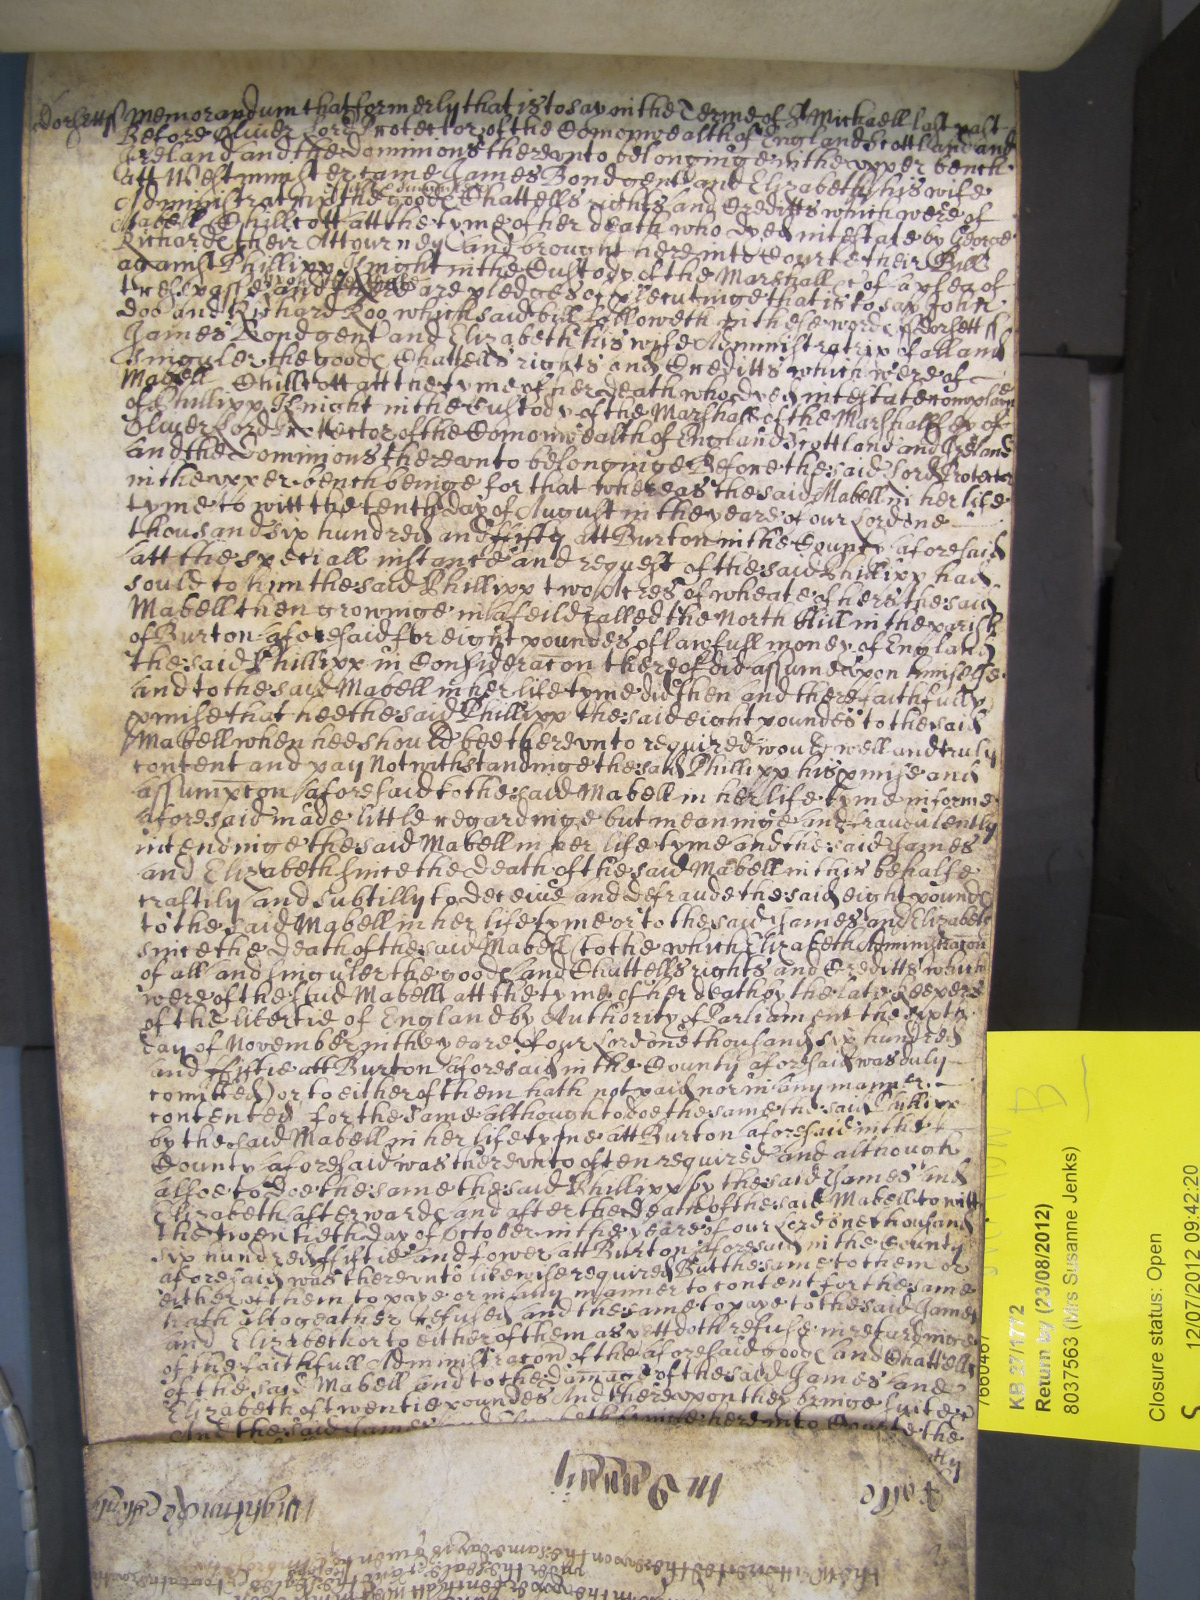 Dorsett ss Memorandum that formerly that is to say in the Terme of St Michaell last past
Before Oliver Lord Protector of the Comonwealth of England Scottland and
Ireland and the dominions therevnto belonginge in the vpper bench
att Westminster came James Bond gent and Elizabeth his wife
Administratrix of all & singuler the goods Chattells rights and Creditts which were of
Mabell Chillcott att the tyme of her death who dyed intestate by George
Richards their Attourney and brought here into Court their Bill
against Phillipp Knight in the Custody of the Marshall &c of a plea of
trespasse and there are pledges of prosecutinge that is to say John
Doo and Richard Roo which said bill followeth in these words ss Dorsett ss
James Bond gent and Elizabeth his wife Administratrix of all and
singuler the goods Chattells rights and Creditts which were of
Mabell Chillcott att the tyme of her death who dyed intestate complaine
of Phillipp Knight in the Custody of the Marshall of the Marshallsey of
Oliver Lord Protector of the Comonwealth of England Scottland and Ireland
and the Dominions therevnto belonginge Before the said Lord Protector
in the vpper bench beinge for that whereas the said Mabell in her life
tyme to witt the tenth day of August in the yeare of our Lord one
thousand six hundred and fifty att Burton in the County aforesaid
att the speciall instance and request of the said Phillipp had
sould to him the said Phillipp two Acres of wheate of hers the said
Mabell then growinge in a feild called the North Hill in the parish
of Burton aforesaid for eight poundes of lawfull money of England
the said Phillipp in Consideracon thereof did assume vpon himselfe
and to the said Mabell in her life tyme did then and there faithfully
pmise that hee the said Phillipp the said eight poundes to the said
Mabell when hee should bee therevnto required would well and truly
content and pay Notwithstandinge the said Phillipp his pmise and
assumpcon aforesaid to the said Mabell in her life tyme in forme
aforesaid made little regardinge but meaninge and fraudulently
intendinge the said Mabell in her life tyme and the said James
and Elizabeth since the death of the said Mabell in this behalfe
craftily and subtilly to deceive and defraude the said eight pounds
to the said Mabell in her life tyme or to the said James and Elizabeth
since the death of the said Mabell (to the which Elizabeth Administracon
of all and singuler the goods and Chattells rights and Creditts which
were of the said Mabell att the tyme of her death by the late Keepers
of the libertie of England by Authority of Parliament the sixth
day of November in the yeare of our Lord one thousand six hundred
and fiftie att Burton aforesaid in the County aforesaid was duly
comitted) or to either of them hath not paid nor in any manner
contented for the same although to doe the same the said Phillipp
by the said Mabell in her life tyme att Burton aforesaid in the
County aforesaid was therevnto often required and although
alsoe to doe the same the said Phillipp by the said James and
Elizabeth afterwards and after the death of the said Mabell to witt
the twentieth day of October in the yeare of our Lord one thousand
six hundred fiftie and fower att Burton aforesaid in the County
aforesaid was therevnto likewise required But the same to them or
either of them to paye or in any manner to content for the same
hath altogeather refused and the same to paye to the said James
and Elizabeth or to either of them as yett doth refuse in retardinge
of the faithfull Administracon of the aforesaid goods and Chattells
of the said Mabell and to the damage of the said James and
Elizabeth of twentie poundes And therevpon they bringe suite &c
And the said James and Elizabeth bringe here into Courte the
B
7660467
KB 27/1772
Return by (23/08/2012)
8037563 (Mrs Susanne Jenks)
Closure status: Open
12/07/2012 09:42:20
S